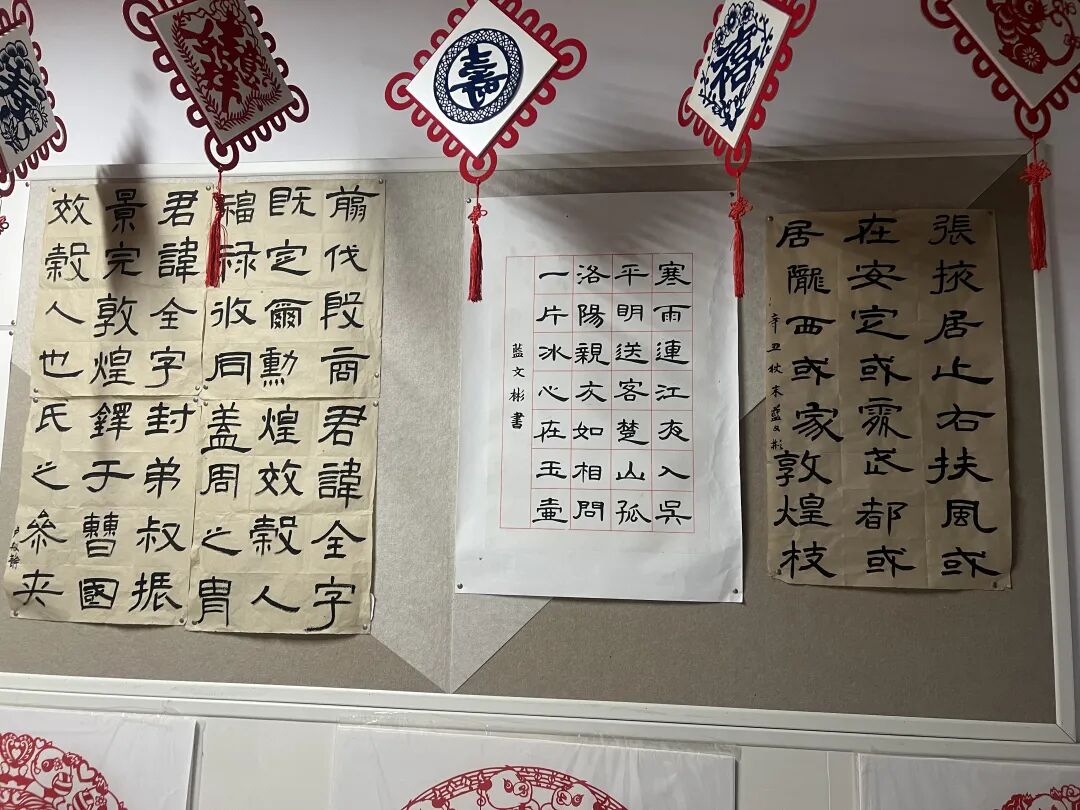 壽
禧
張掖居止右扶風或
在安定或處武都或
居隴西或家敦煌枝
辛丑秋末藍文彬
寒雨連江夜入吳
平明送客楚山孤
洛陽親友如相問
一片冰心在玉壺
藍文彬書
翦伐殷商君諱全字
既定爾勳煌效穀人
福禄攸同蓋周之胄
君諱全字封弟叔振
景完敦煌鐸于曹國
效穀人也氏之參夾